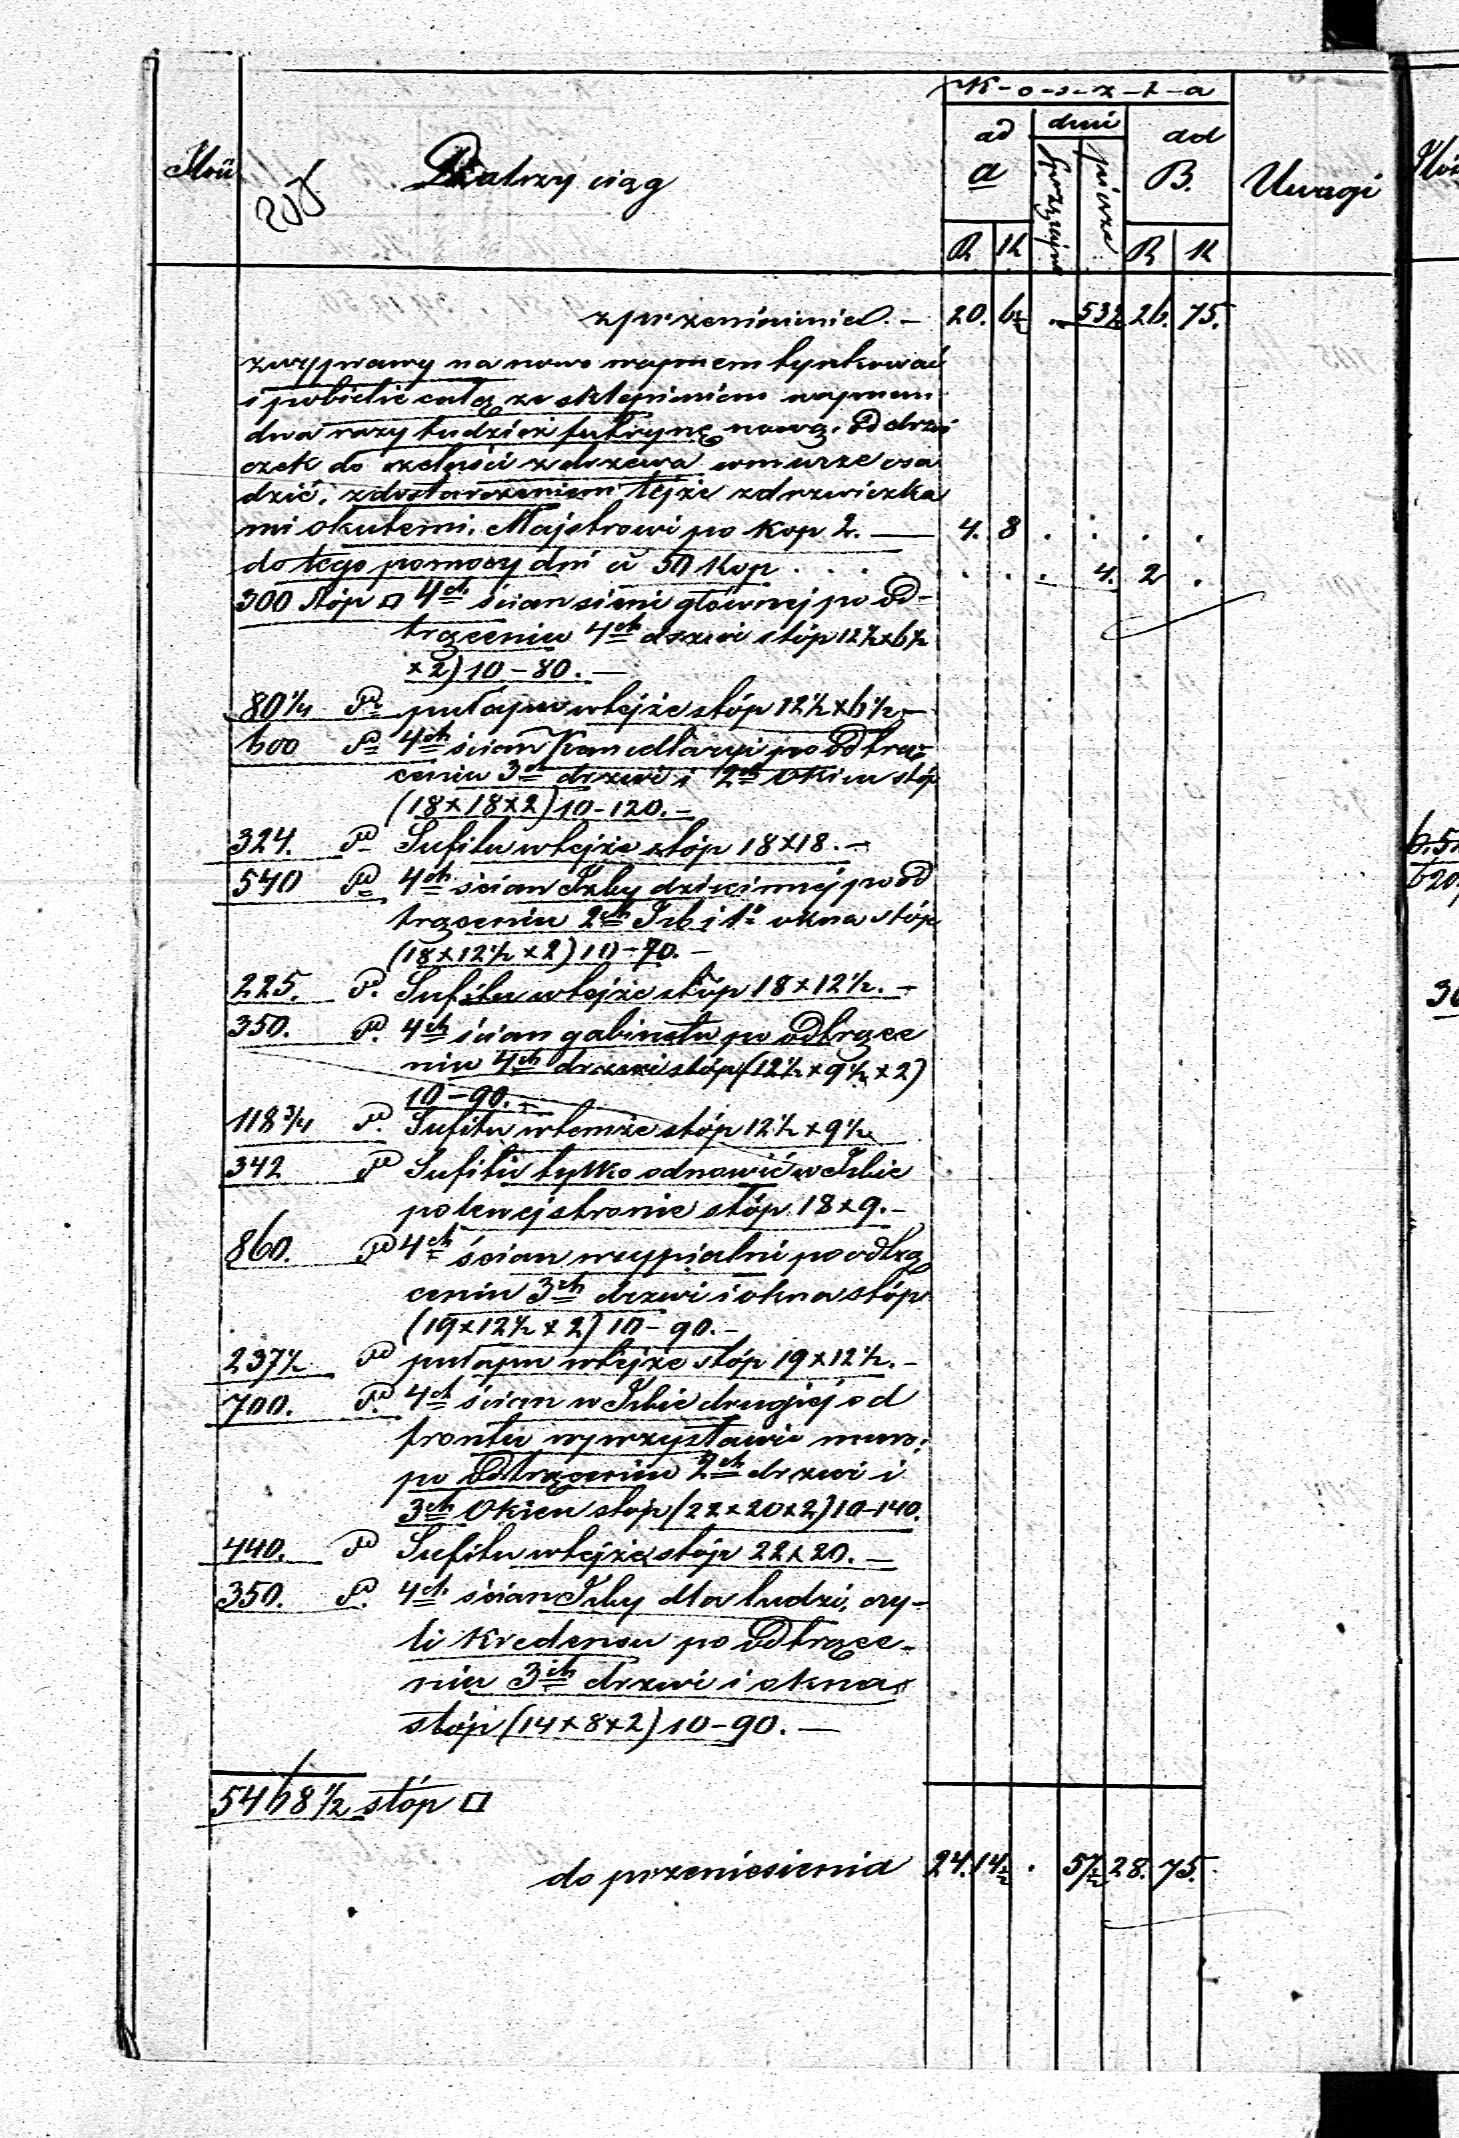 K-o-s-z-t-a
Ilość Dalszy ciąg ad a dni sprzężajne piesze ad B. Uwagi
R K R K
z przeniesienia. — 20. 6½ . 53½ 26. 75.
z wyprawy na nowo wapnem tynkować
i pobielić całą ze sklepieniem wapnem
dwa razy tudzież futrynę nową od drzwi
czek do czeluści z drzewa w murze osa
dzić, z dostarczeniem tejże z drzwiczka
mi okutemi. Majstrowi po kop 2. — 4. 8 . . . .
do tego pomocy dni à 50 kop . . . . . . . 4. 2 .
300 stóp □ 4ch ścian sieni głównej po od-
trąceniu 4ch drzwi stóp 12½ x 6½
x 2) 10 – 80. —
80¼ " pułapu w tejże stóp 12½ x 6½ —
600 " 4ch ścian Kancellaryi po odtrą-
ceniu 3ch drzwi i 2ch okien stóp
(18 x 18 x 2) 10 – 120. —
324. " Sufitu w tejże stóp 18 x 18. —
540 " 4ch ścian Izby dziecinnej po od
trąceniu 2ch i 1o okna stóp
(18 x 12½ x 2) 10 – 70. —
225. " Sufitu w tejże stóp 18 x 12½. —
350. " 4ch ścian gabinetu po odtrące
niu 4ch drzwi stóp (12½ x 9½ x 2)
10 – 90. —
118¾ " Sufitu w temże stóp 12½ x 9½
342 " Sufitu tylko odnowić w Izbie
po lewej stronie stóp 18 x 9. —
860. " 4ch ścian w sypialni po odtrą
ceniu 3ch drzwi i okna stóp
(19 x 12½ x 2) 10 – 90. —
237½ " pułapu w tejże stóp 19 x 12½. —
700. " 4ch ścian w Izbie drugiej od
frontu w przystawie muro:
po odtrąceniu 2ch drzwi i
3ch Okien stóp (22 x 20 x 2) 10 – 140.
440. " Sufitu w tejże stóp 22 x 20. —
350. " 4ch ścian Izby dla ludzi, czy-
li kredensu po odtrące-
niu 3ch drzwi i okna
stóp (14 x 8 x 2) 10 – 90. —
5468½ stóp □
do przeniesienia 24. 14½ . 57½ 28. 75.